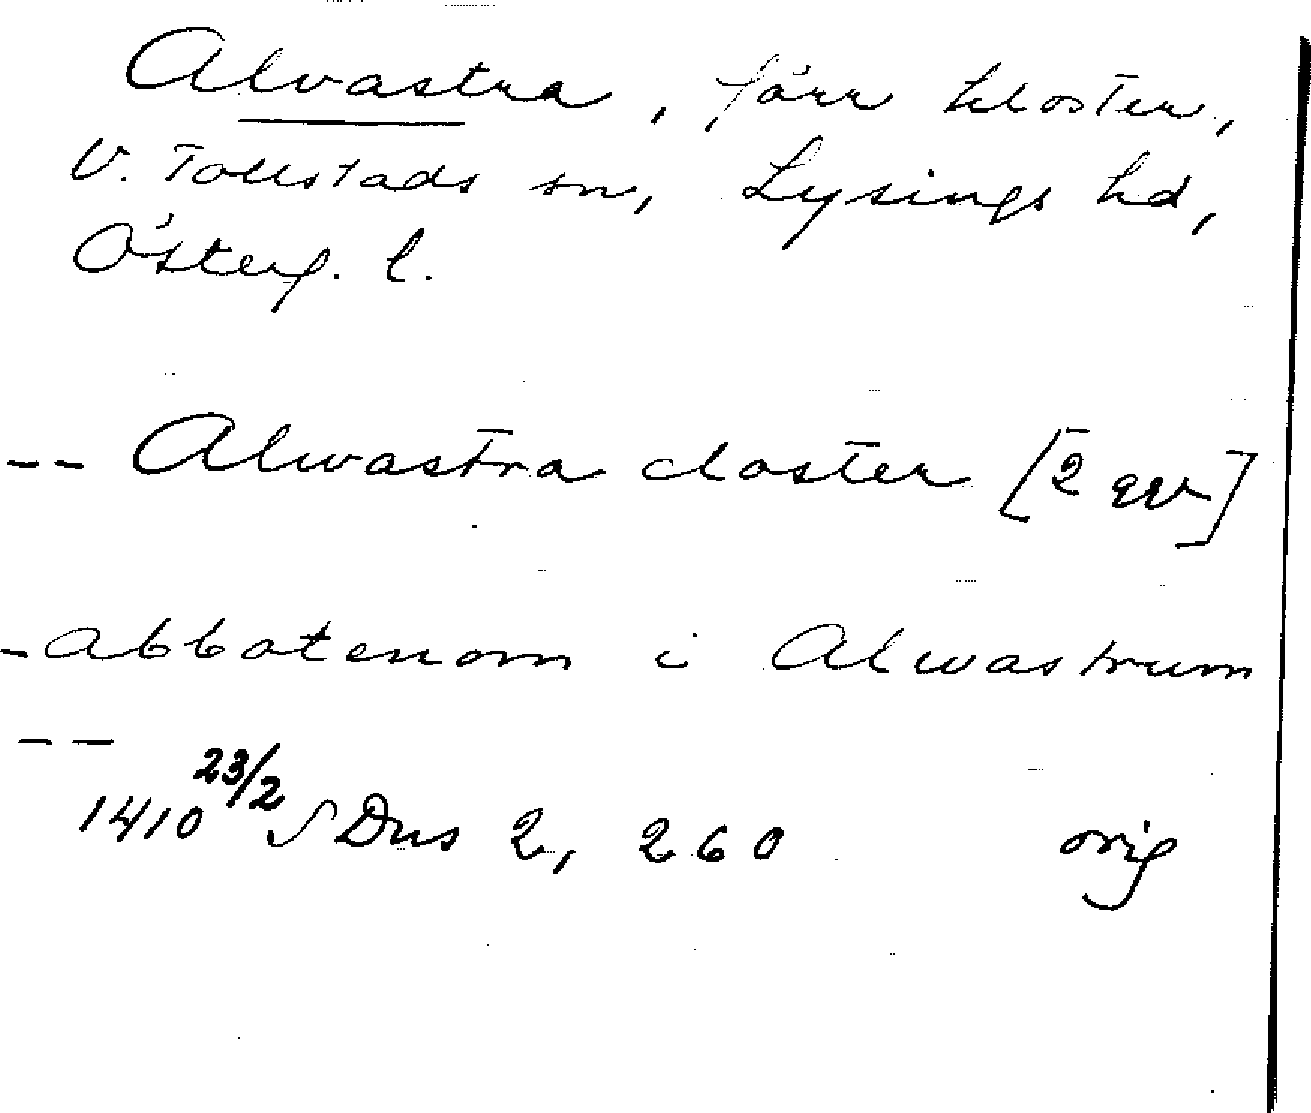 Alvastra, förr kloster,
V. Tollstads sn, Lysings hd,
Österg. l.
-- Alwastra closter [2 ggr]
- abbotenom i Alwastrum
--
1410 23/2 SDns 2, 260 orig